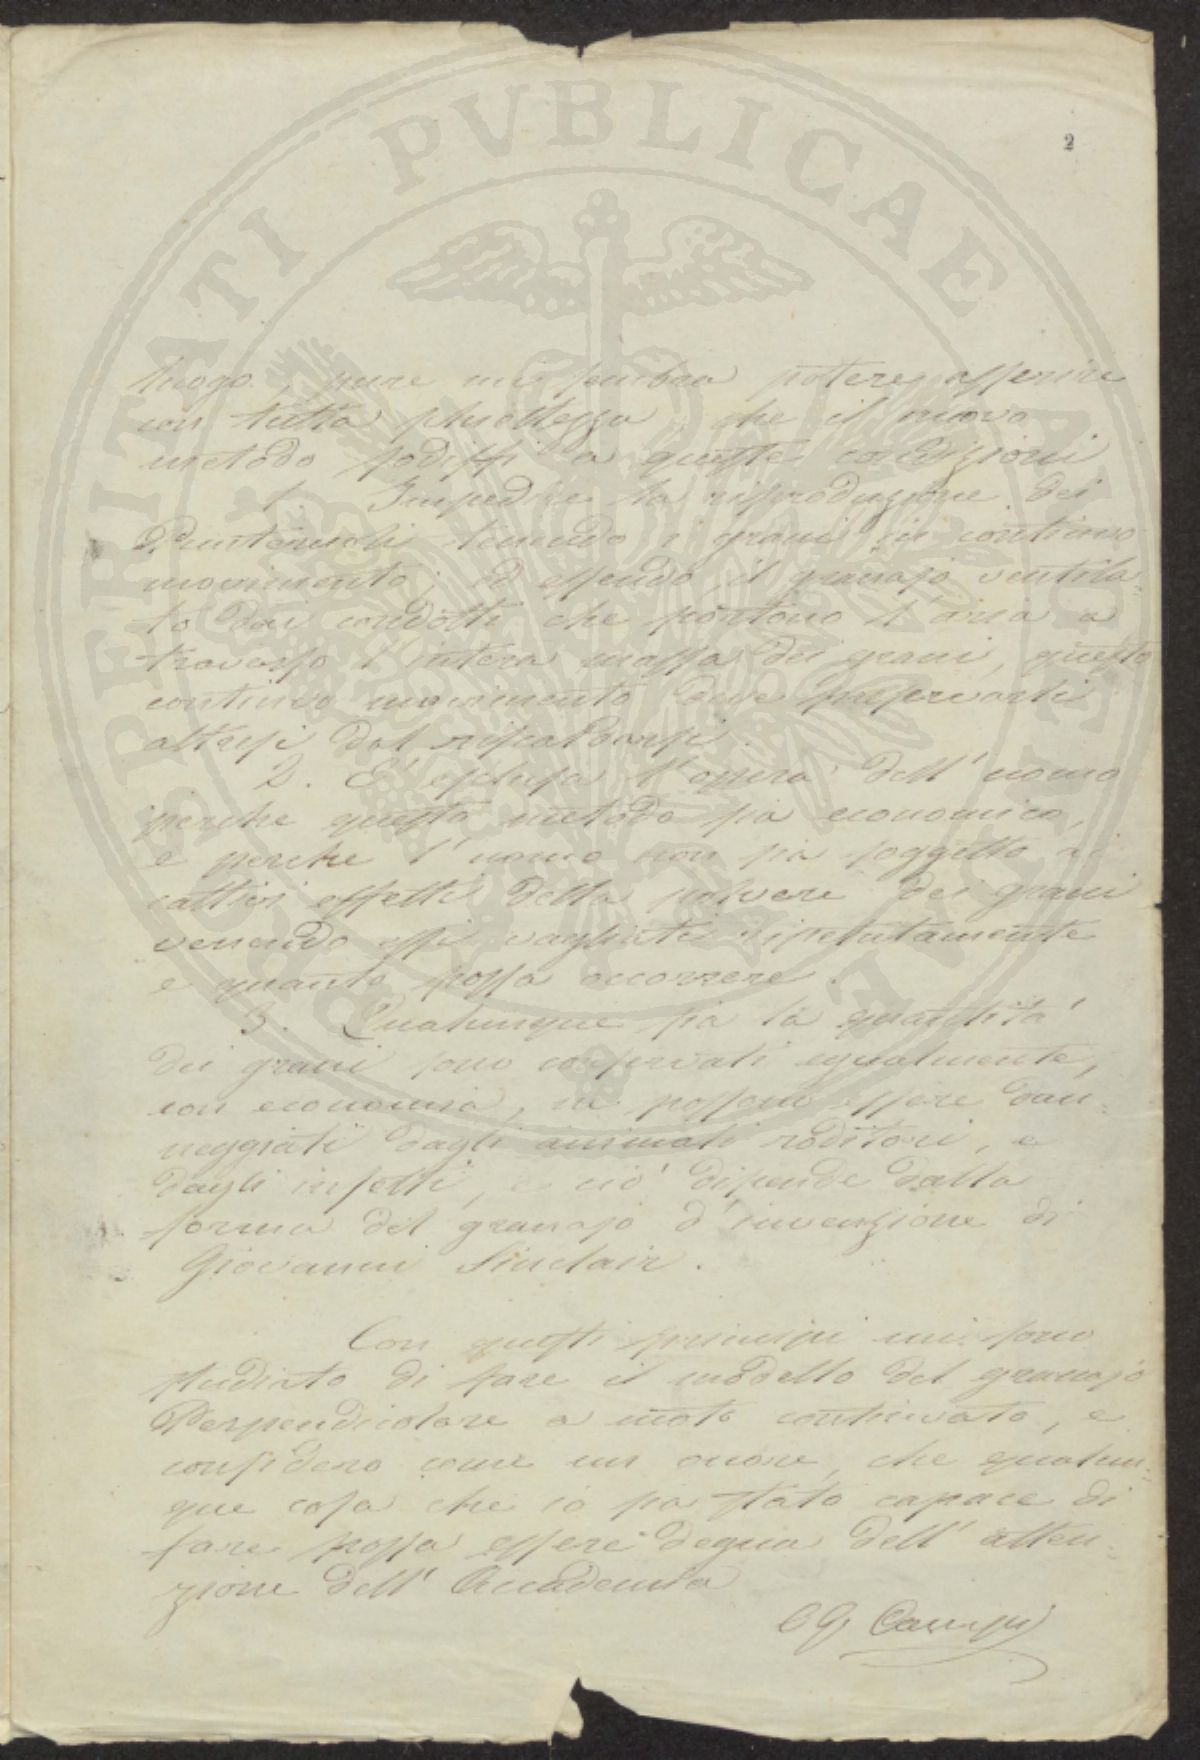 2
luogo, pure mi sembra potere asserire
con tutta schiettezza, che il nuovo
metodo sodisfi a queste condizioni
1. Impedire la riproduzione dei
Punteruoli tenendo i grani in continuo
movimento; ed essendo il granajo ventila=
to dai condotti che portono l'aria a
traverso l'intera massa dei grani, questo
continuo movimento deve preservarli
altresì dal riscaldarsi.
2. E' esclusa l'opera dell'uomo
perche questo metodo sia economico,
e perche l'uomo non sia soggetto ai
cattivi effetti della polvere dei grani
venendo essi vagliati ripetutamente
e quanto possa occorrere.
3. Qualunque sia la quantità
dei grani sono conservati egualmente,
con economia, ne possono essere dan=
neggiati dagli animali roditori, e
dagli insetti, e ciò dipende dalla
forma del granajo d'invenzione di
Giovanni Sinclair.
Con questi principi mi sono
studiato di fare il modello del granajo
Perpendicolare a moto continuato, e
considero come un onore, che qualun=
que cosa che io sia stato capace di
fare possa essere degna dell'atten=
zione dell'Accademia
PVBLICAE
PROSPERITATI